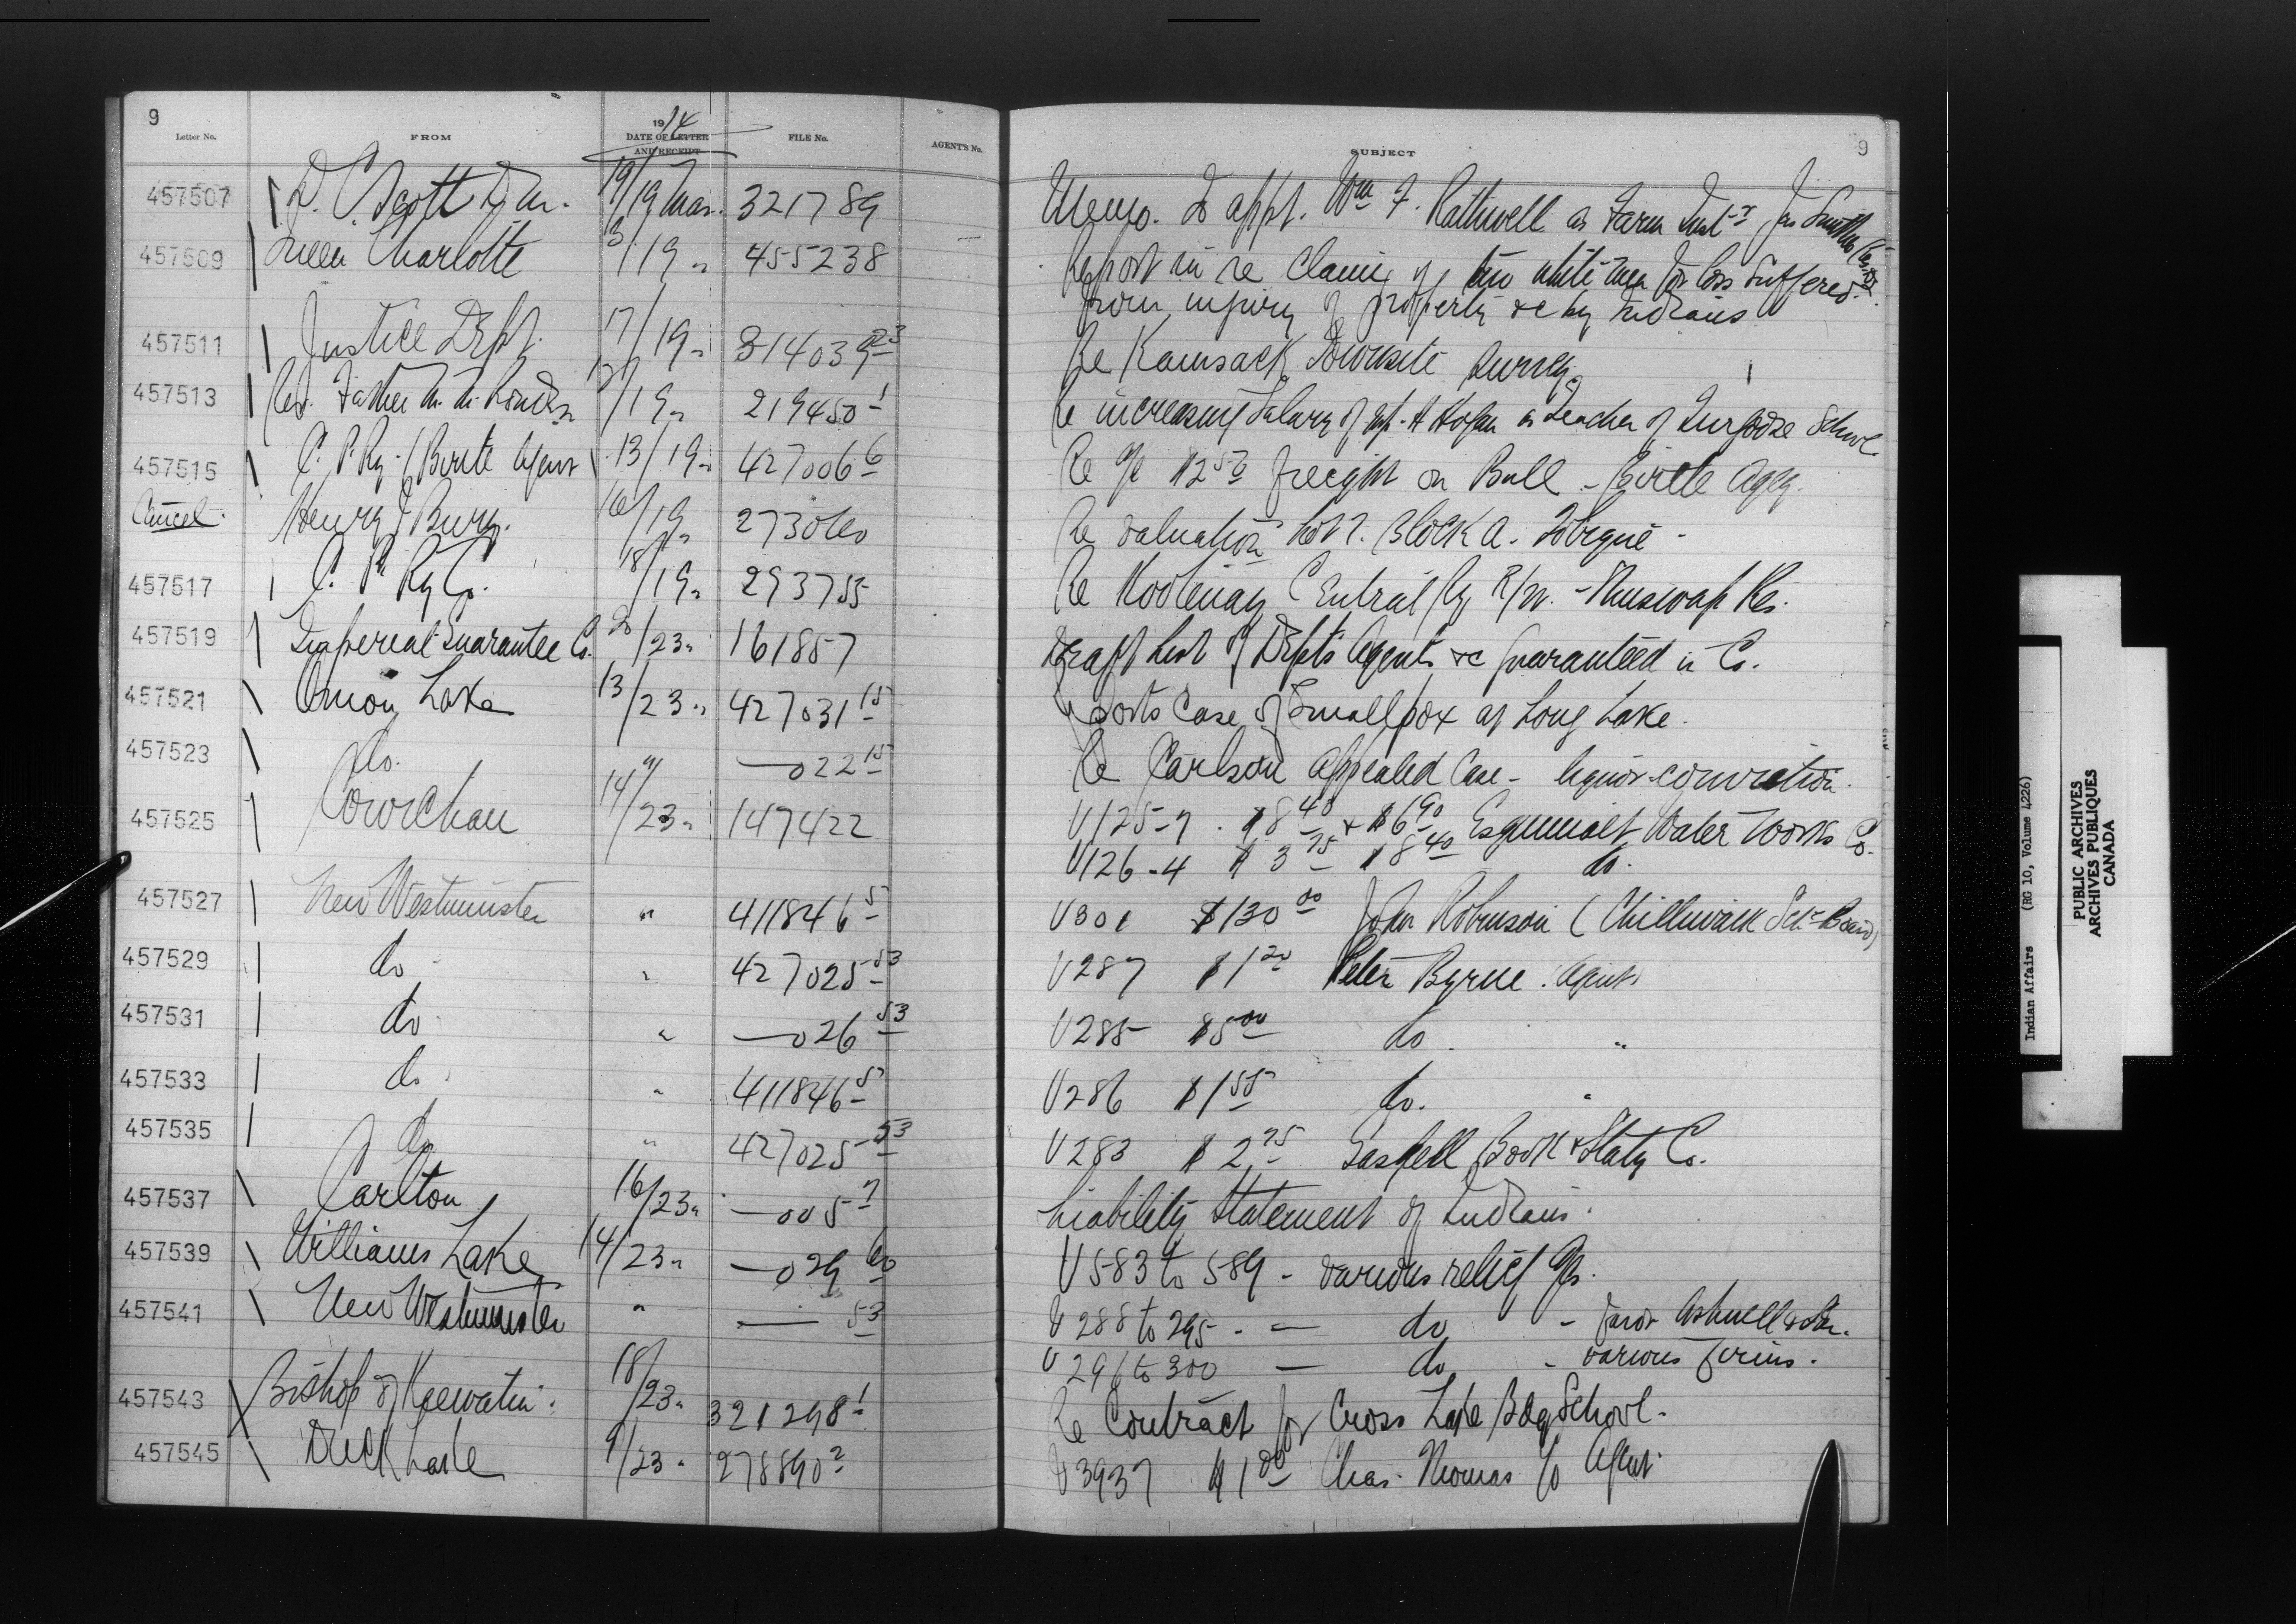 9
Letter No. FROM 1914 DATE OF LETTER AND RECEIPT FILE No. AGENT'S No. SUBJECT 9
457507 D. C. Scott D.M. 19/19 Mar. 321789 Memo. to appt. Wm F. Rothwell as Farm Inst-r Jas Smiths
457509 Queen Charlotte 3/19 " 455238 Report in re Claims of two white men for loss suffered
from injury of property &c by Indians
457511 Justice Dept. 17/19 " 314039 23 Re Kamsack Townsite Survey
457513 Rev. Father 19 " 219450 1 Re increasing Salary of as teacher of Turgoose School
457515 C. P. Ry. (Birtle Agent) 13/19 " 427006 6 Re a/c $2 freight on Bull - Birtle Agcy.
Cancel. Henry J Bury. 16/19 " 273060 Re Valuation Lot 7. Block A. Tobique -
457517 C. P. Ry Co. 18/19 " 293755 Re Kootenay Central Ry R/W. - Shuswap Res.
457519 Imperial Guarantee Co. 20/23 " 161857 Draft List of Dept's Agents &c guaranteed in Co.
457521 Onion Lake 13/23 " 427031 15 Reports Case of Smallpox at Long Lake.
457523 do. 9/ — 022 15 Re Carlson Appealed Case - liquor conviction.
457525 Cowichan 14/23 " 147422 V125-7. $8 40 & $6 90 Esquimalt Water Works Co.
V126-4 $3 75 $8 40 do.
457527 New Westminster " 411846 5 V301 $130 00 John Robinson (Chilliwack Sch. Board)
457529 do " 427025 53 V287 $1 20 Peter Byrne. Agent
457531 do " — 026 53 V285 $5 00 do. "
457533 do " 411846 5 V286 $1 55 do. "
457535 do " 427025 53 V283 $2 75 Gaskell Book & Staty Co.
457537 Carlton 16/23 " — 005 7 Liability Statement of Indians.
457539 Williams Lake 14/23 " — 029 60 V583 to 589 - various relief a/cs.
457541 New Westminster " — 53 V288 to 295 - — do - favor Ashwell & Son.
V296 to 300 — do - various firms.
457543 Bishop of Keewatin. 18/23 " 321298 1 Re Contract for Cross Lake Bdg School.
457545 Duck Lake 9/23 " 278890 2 V3937 $1 00 Chas. Thomas c/o Agent.
Indian Affairs (RG 10, Volume 4226)
PUBLIC ARCHIVES
ARCHIVES PUBLIQUES
CANADA